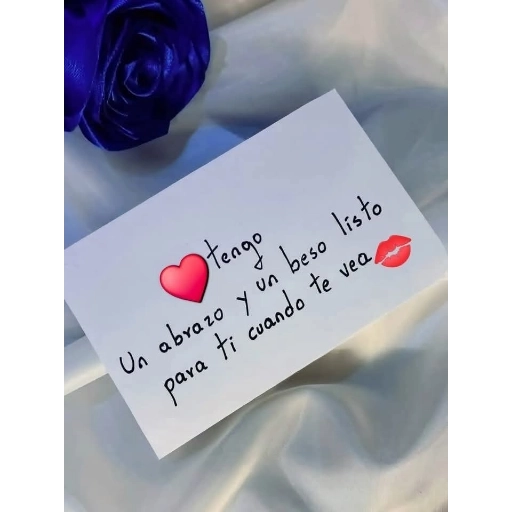 tengo
Un abrazo y un beso listo
para ti cuando te vea